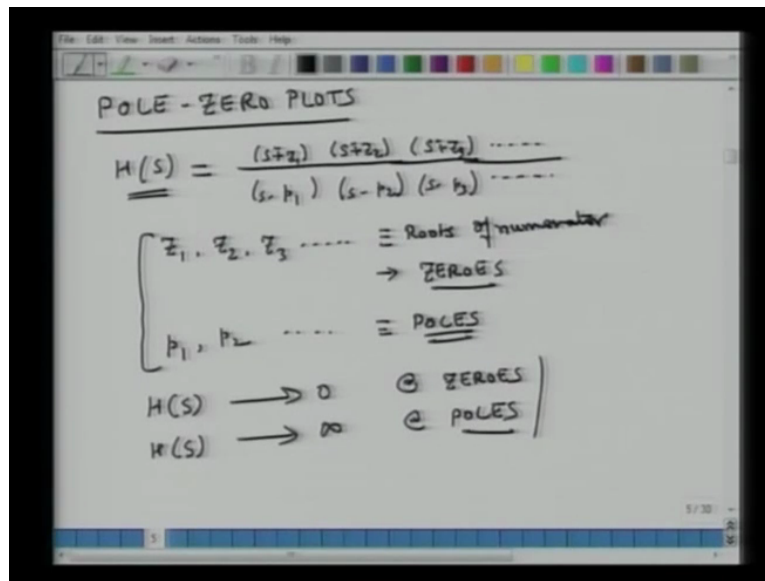 File Edit View Insert Actions Tools Help
POLE-ZERO PLOTS
H(S) = (s-z1) (s-z2) (s-z3) ...... / (s-p1) (s-p2) (s-p3) ......
Z1, Z2, Z3 ...... ≡ Roots of numerator
→ ZEROES
p1, p2 ...... ≡ POLES
H(S) → 0 @ ZEROES
H(S) → ∞ @ POLES
5/30
5